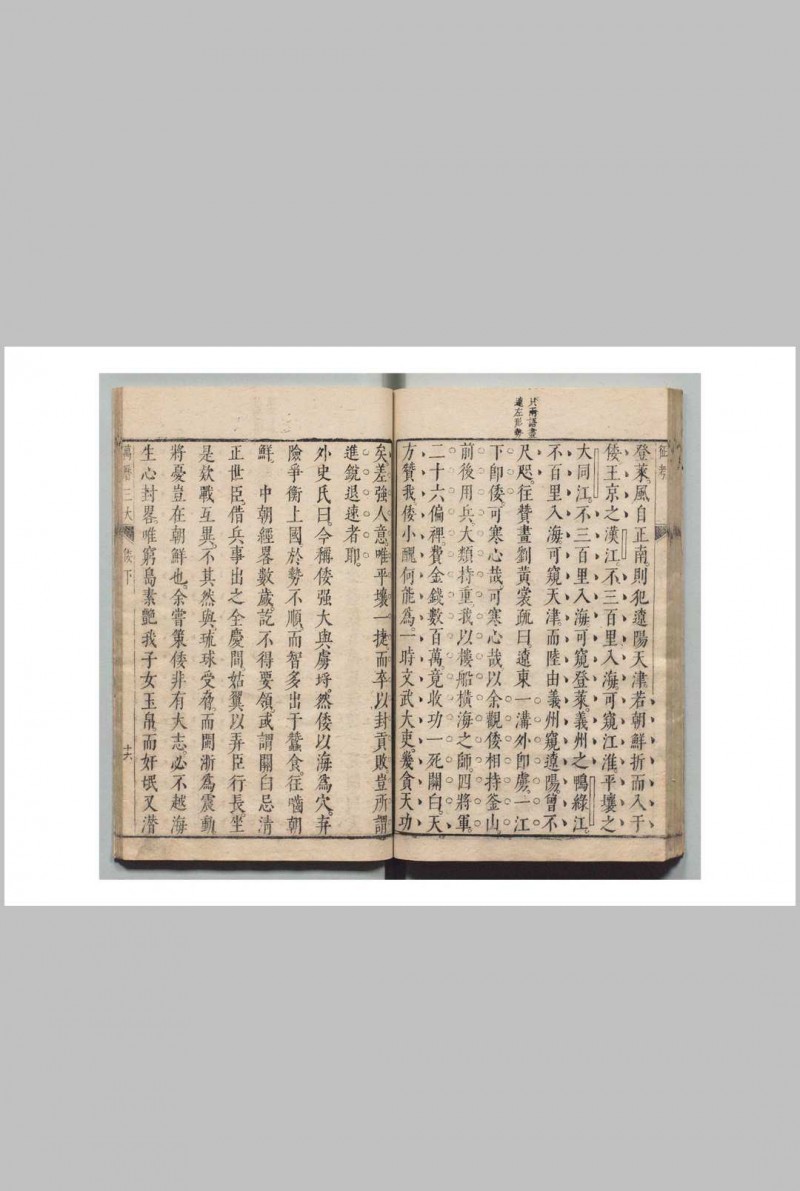 征考
只兩語盡
遼左形勢
登萊風自正南則犯遼陽天津若朝鮮折而入于
倭王京之漢江不三百里入海可窺江淮平壤之
大同江不三百里入海可窺登萊義州之鴨綠江
不百里入海可窺天津而陸由義州窺遼陽曾不
尺咫往贊畫劉黃裳疏曰遼東一溝外即虜一江
下即倭可寒心哉可寒心哉以余觀倭相持釜山
前後用兵大類持重我以樓船橫海之師四將軍
二十六偏裨費金錢數百萬竟收功一死關白天
方贊我倭小醜何能為一時文武大吏幾貪天功
矣差強人意唯平壤一捷而卒以封貢敗豈所謂
進銳退速者耶
外史氏曰今稱倭強大與虜埒然倭以海為穴弃
險爭衡上國於勢不順而智多出于蠶食往嚙朝
鮮中朝經畧數歲訖不得要領或謂關白忌清
正世臣借兵事出之全慶間姑翼以弄臣行長坐
是欵戰互異不其然與琉球受脅而閩浙為震動
將憂豈在朝鮮也余嘗策倭非有大志必不越海
生心封畧唯窮島素艷我子女玉帛而奸氓又潛
萬曆三大 倭下 十六